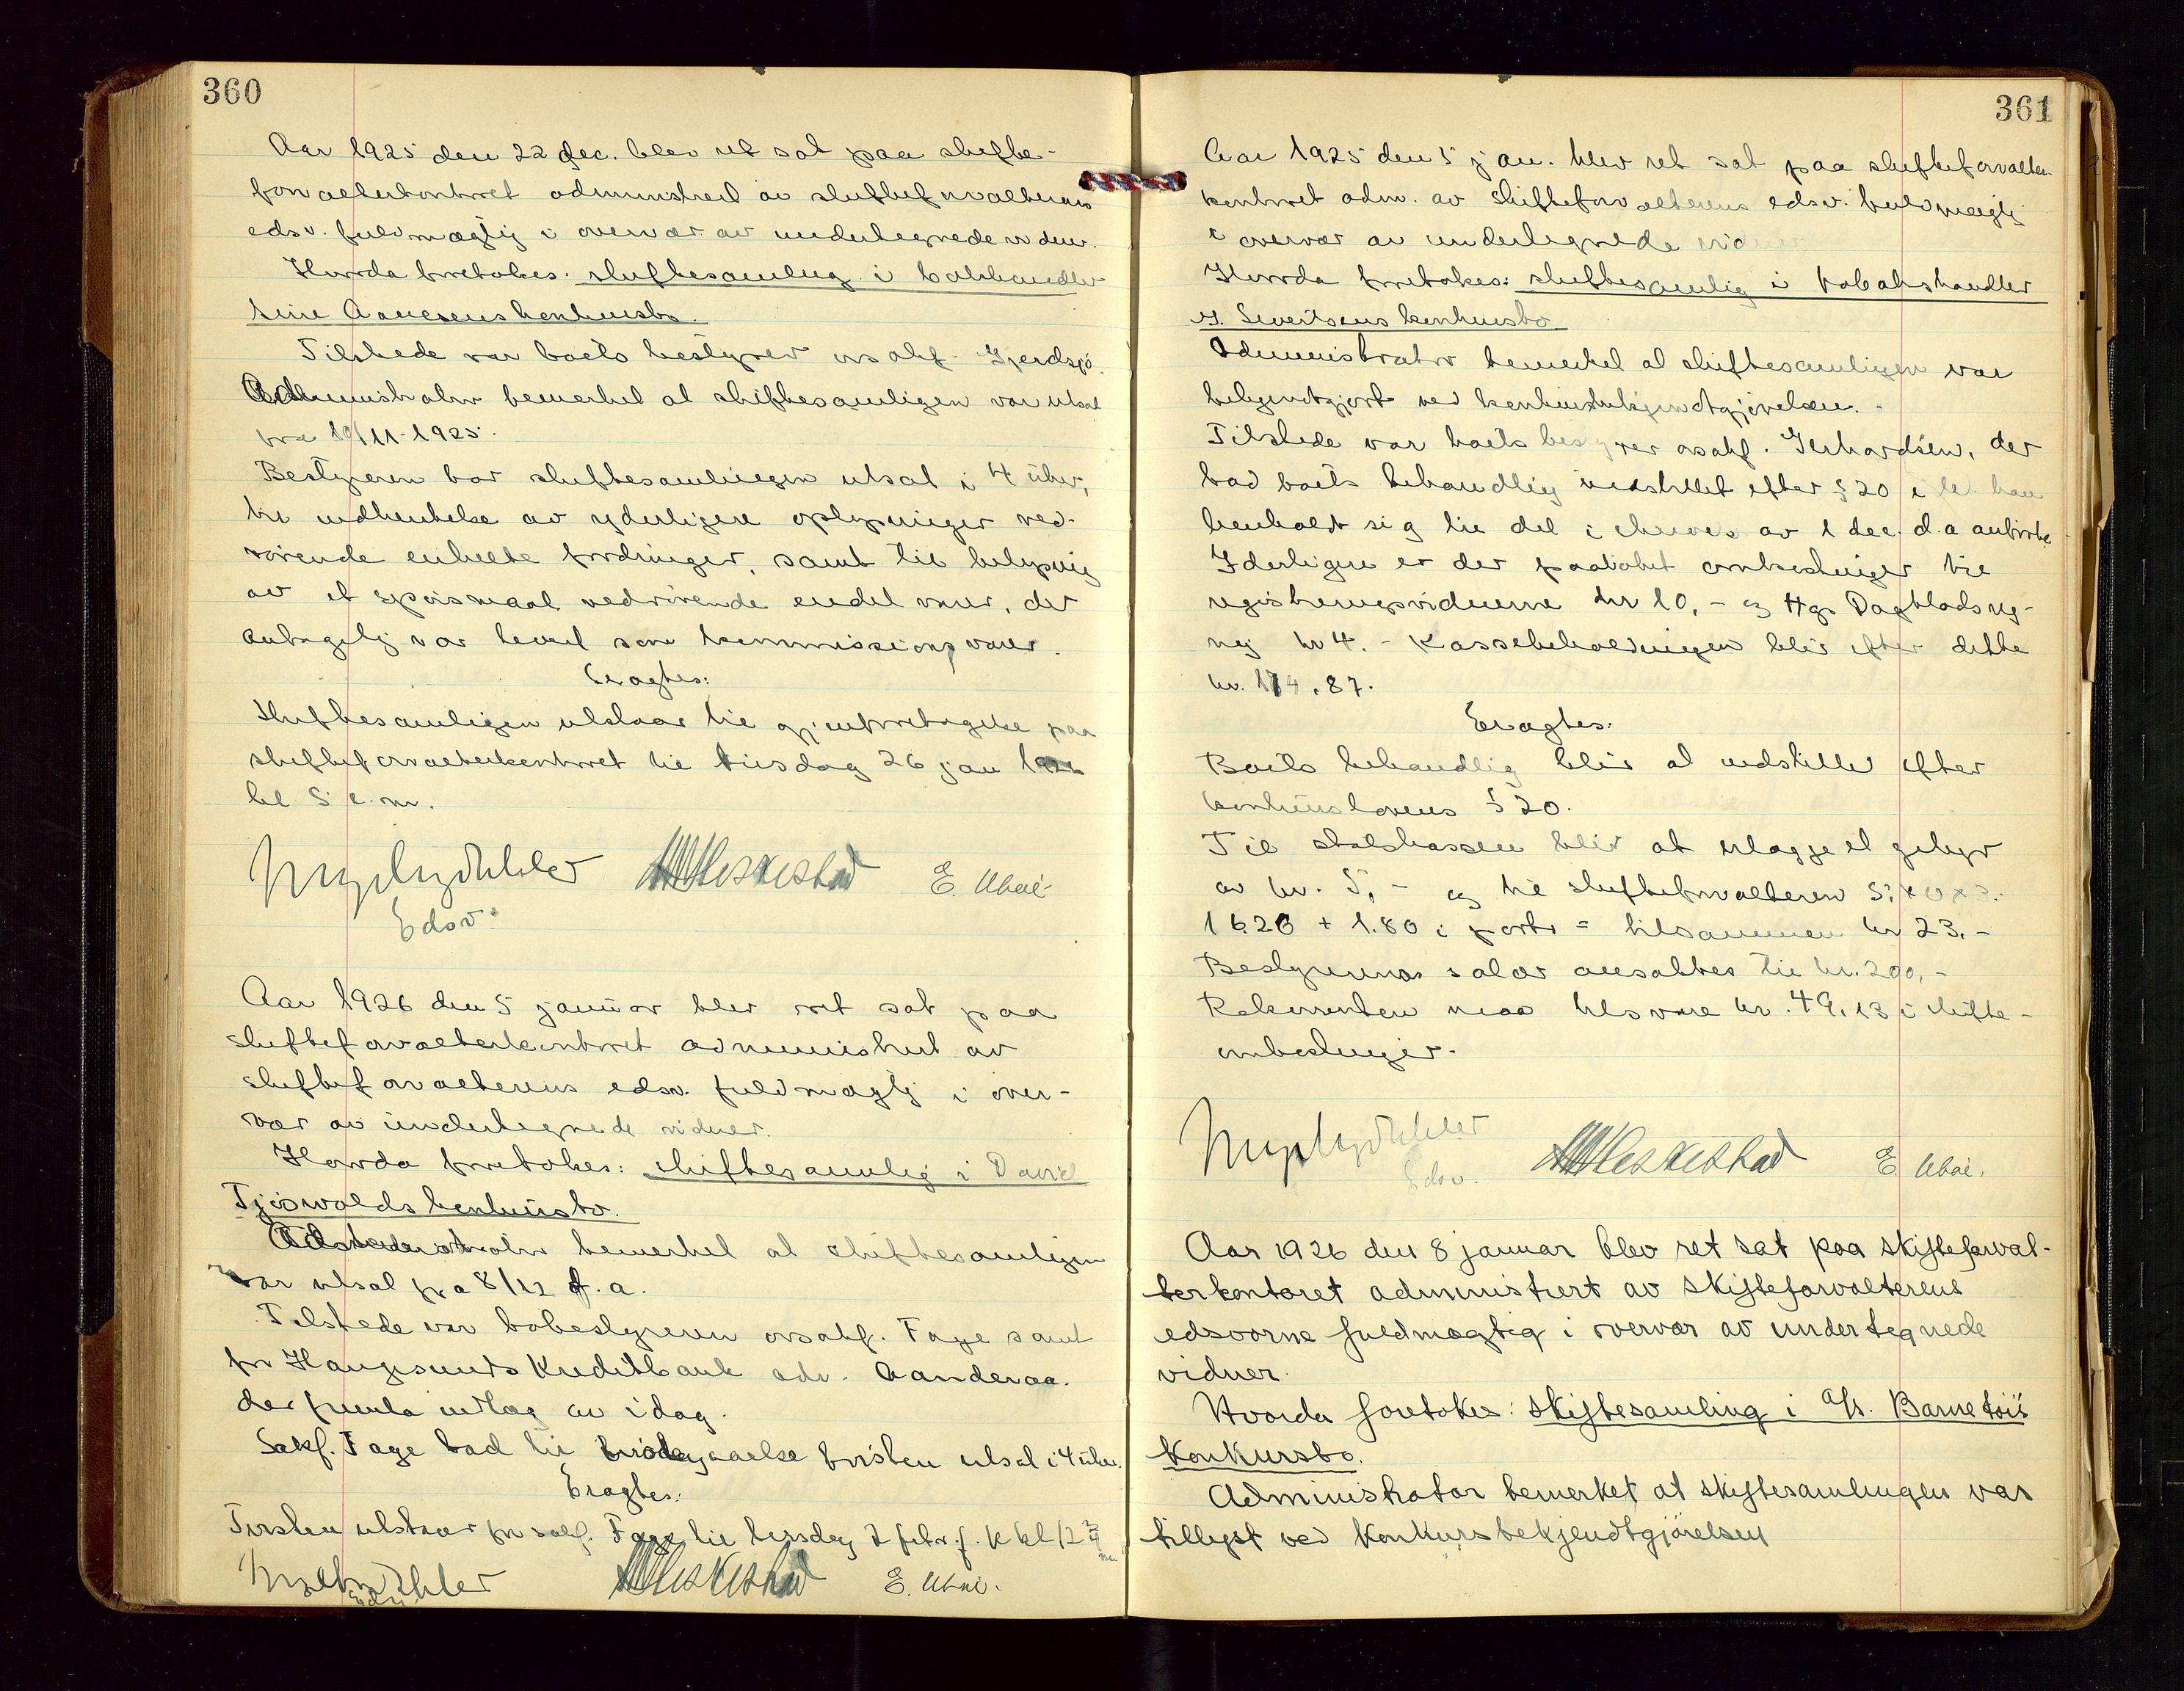 360
Aar 1925 den 22 dec. blev ret sat paa skifte-
forvalterkontoret administrert av skifteforvalterens
edsv. fuldmægtig i overvær av undertegnede vidner.
Hvorda foretokes: skiftesamling i
konkursbo.
Tilstede var boets bestyrer o.r.sakf. Gjerdsjø.
Administrator bemerket at skiftesamlingen var utsat
fra 10/11-1925.
Bestyreren bar skiftesamlingen utsat i 4 uker,
til indhentelse av yderligere oplysninger ved-
rørende enkelte fordringer, samt til belysning
av et spørsmaal vedrørende endel varer, der
antagelig var levert som kommissionsvarer.
Eragtes:
Skiftesamlingen utstaar til gjenforetagelse paa
skifteforvalterkontoret til tirsdag 26 jan 1926
kl 5 e.m.
Edsv.
Aar 1926 den 5 januar blev ret sat paa
skifteforvalterkontoret administrert av
skifteforvalterens edsv. fuldmægtig i over-
vær av undertegnede vidner.
Hvorda foretokes: skiftesamling i David
Tjøsvolds konkursbo.
Administrator bemerket at skiftesamlingen
var utsat fra 8/12 f.a.
Tilstede var bobestyreren orsakf. Fage samt
for Haugesunds Kreditbank adv. Aanderaa.
der frem la utlæg av idag.
Sakf. Fage bad til fristen utsat i 4 uker.
Eragtes:
Fristen utstaar for sakf. Fage til tirsdag 2 febr. f. k kl 12
Edsv.
361
Aar 1925 den 5 jan. blev ret sat paa skifteforvalter-
kontoret adm. av skifteforvalterens edsv. fuldmægtig
i overvær av undertegnede vidner
Hvorda foretokes: skiftesamling i tobakshandler
Sivertsens konkursbo
Administrator bemerket at skiftesamlingen var
bekjendtgjort ved konkursbekjendtgjørelsen.
Tilstede var boets bestyrer orsakf. Gerhardsen, der
bad boets behandling indstillet efter § 20 i det han
henholdt sig til det i skrivels av 1 dec. d.a anførte
Yderligere er der paaløpet omkostninger til
registreringsvidnerne kr 10,- og Hgs Dagblads reg-
ning kr 4.- Kassebeholdningen blir efter dette
kr. 174,87.
Eragtes:
Boets behandling blir at indstille efter
konkurslovens § 20.
Til statskassen blir at erlægge et gebyr
av kr. 5,- og til skifteforvalteren
16.20 + 1.80 i porto = tilsammen kr 23.-
Bestyrerens salær ansættes til kr. 200,-
Rekvirenten maa tilsvare kr. 49,13 i skifte-
omkostninger.
Edsv.
Aar 1926 den 8 januar blev ret sat paa skifteforval-
terkontoret administrert av skifteforvalterens
edsvorne fuldmægtig i overvær av undertegnede
vidner.
Hvorda foretokes: skiftesamling i A/s. Barnetøi's
konkursbo.
Administrator bemerket at skiftesamlingen var
tillyst ved konkursbekjendtgjørelsen